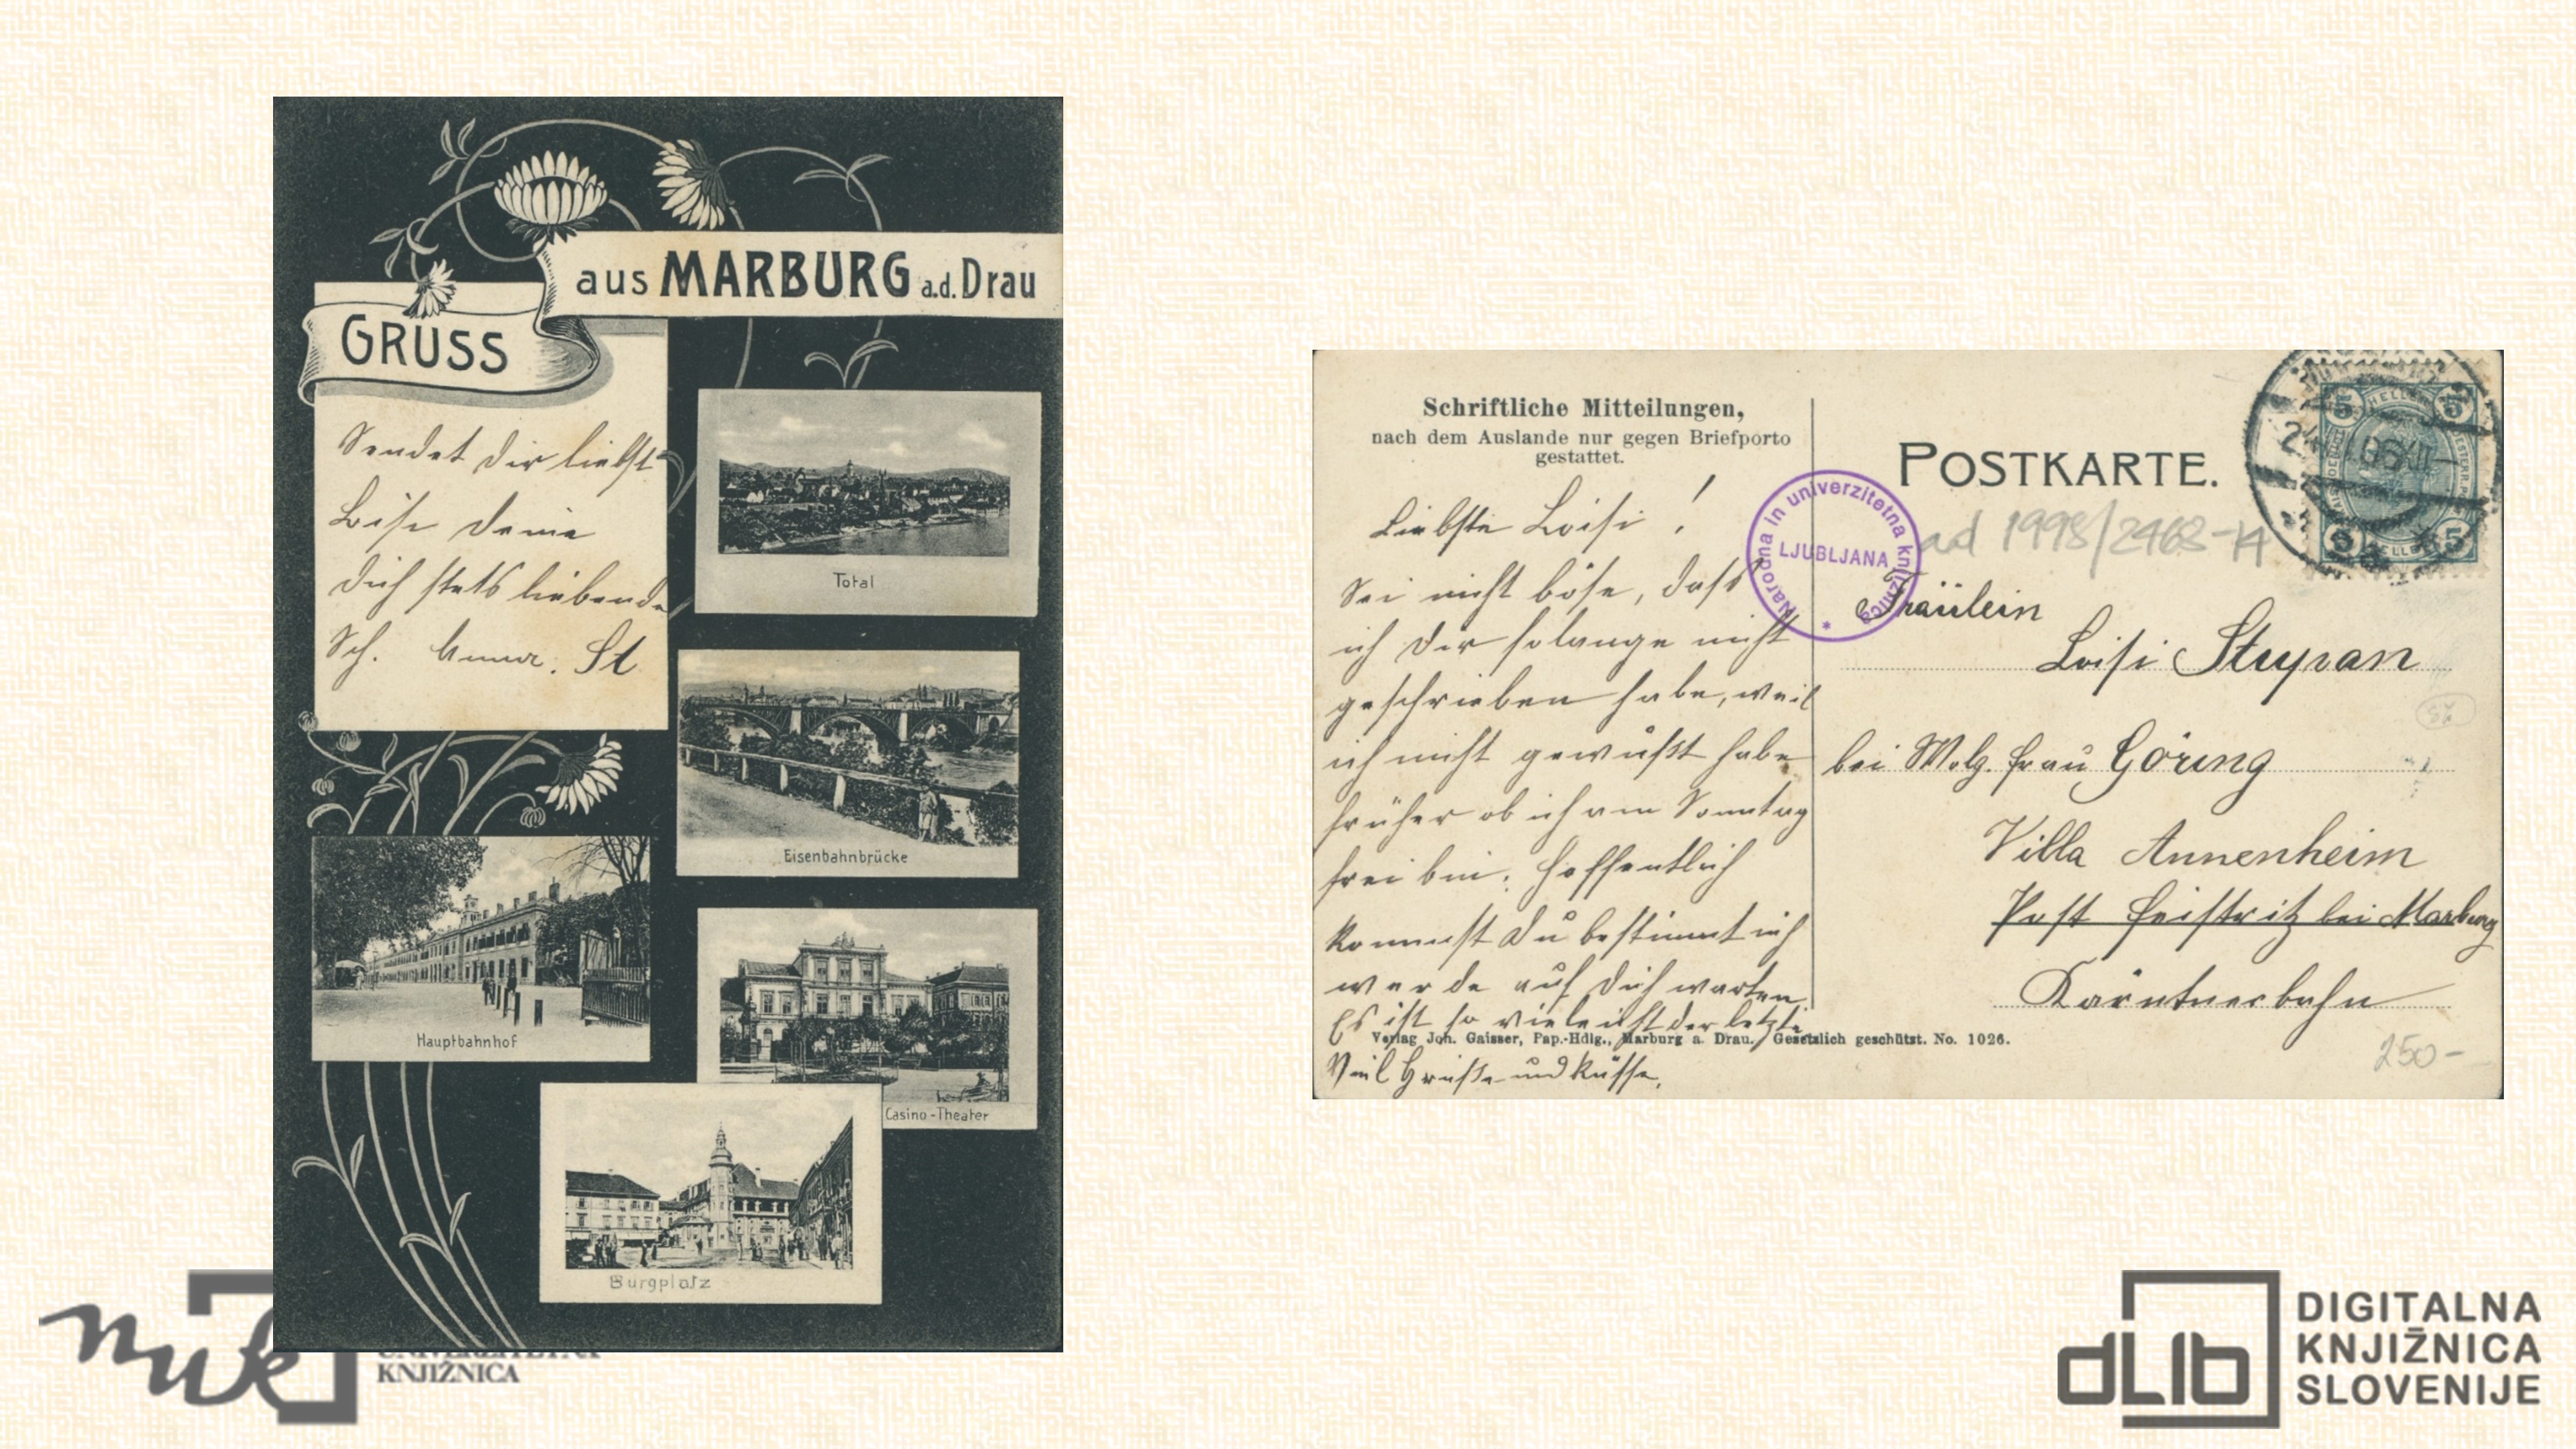 GRUSS
aus MARBURG a.d. Drau
Sendet dir liebste
Loise deine
dich stets liebende
Sch. St
Total
Eisenbahnbrücke
Hauptbahnhof
Casino-Theater
Burgplatz
Schriftliche Mitteilungen,
nach dem Auslande nur gegen Briefporto
gestattet.
Liebste Loisi!
Sei nicht böse, dass
ich dir solange nicht
geschrieben habe, weil
ich nicht gewußt habe
früher ob ich am Sonntag
frei bin. Hoffentlich
kommst Du bestimmt ich
werde auf dich warten
Es ist so der letzte
Viel Grüße und Küsse.
Verlag Joh. Gaisser, Pap.-Hdlg., Marburg a. Drau. Gesetzlich geschützt. No. 1026.
POSTKARTE.
Narodna in univerzitetna knjižnica
LJUBLJANA
ad 1998/2468-14
Fräulein
Loisi Stupan
bei Wolg. Frau Göring
Villa Annenheim
Post Feistritz bei Marburg
Kärntnerbahn
250-
5 HELLER 5
nuk
KNJIŽNICA
dLib
DIGITALNA
KNJIŽNICA
SLOVENIJE